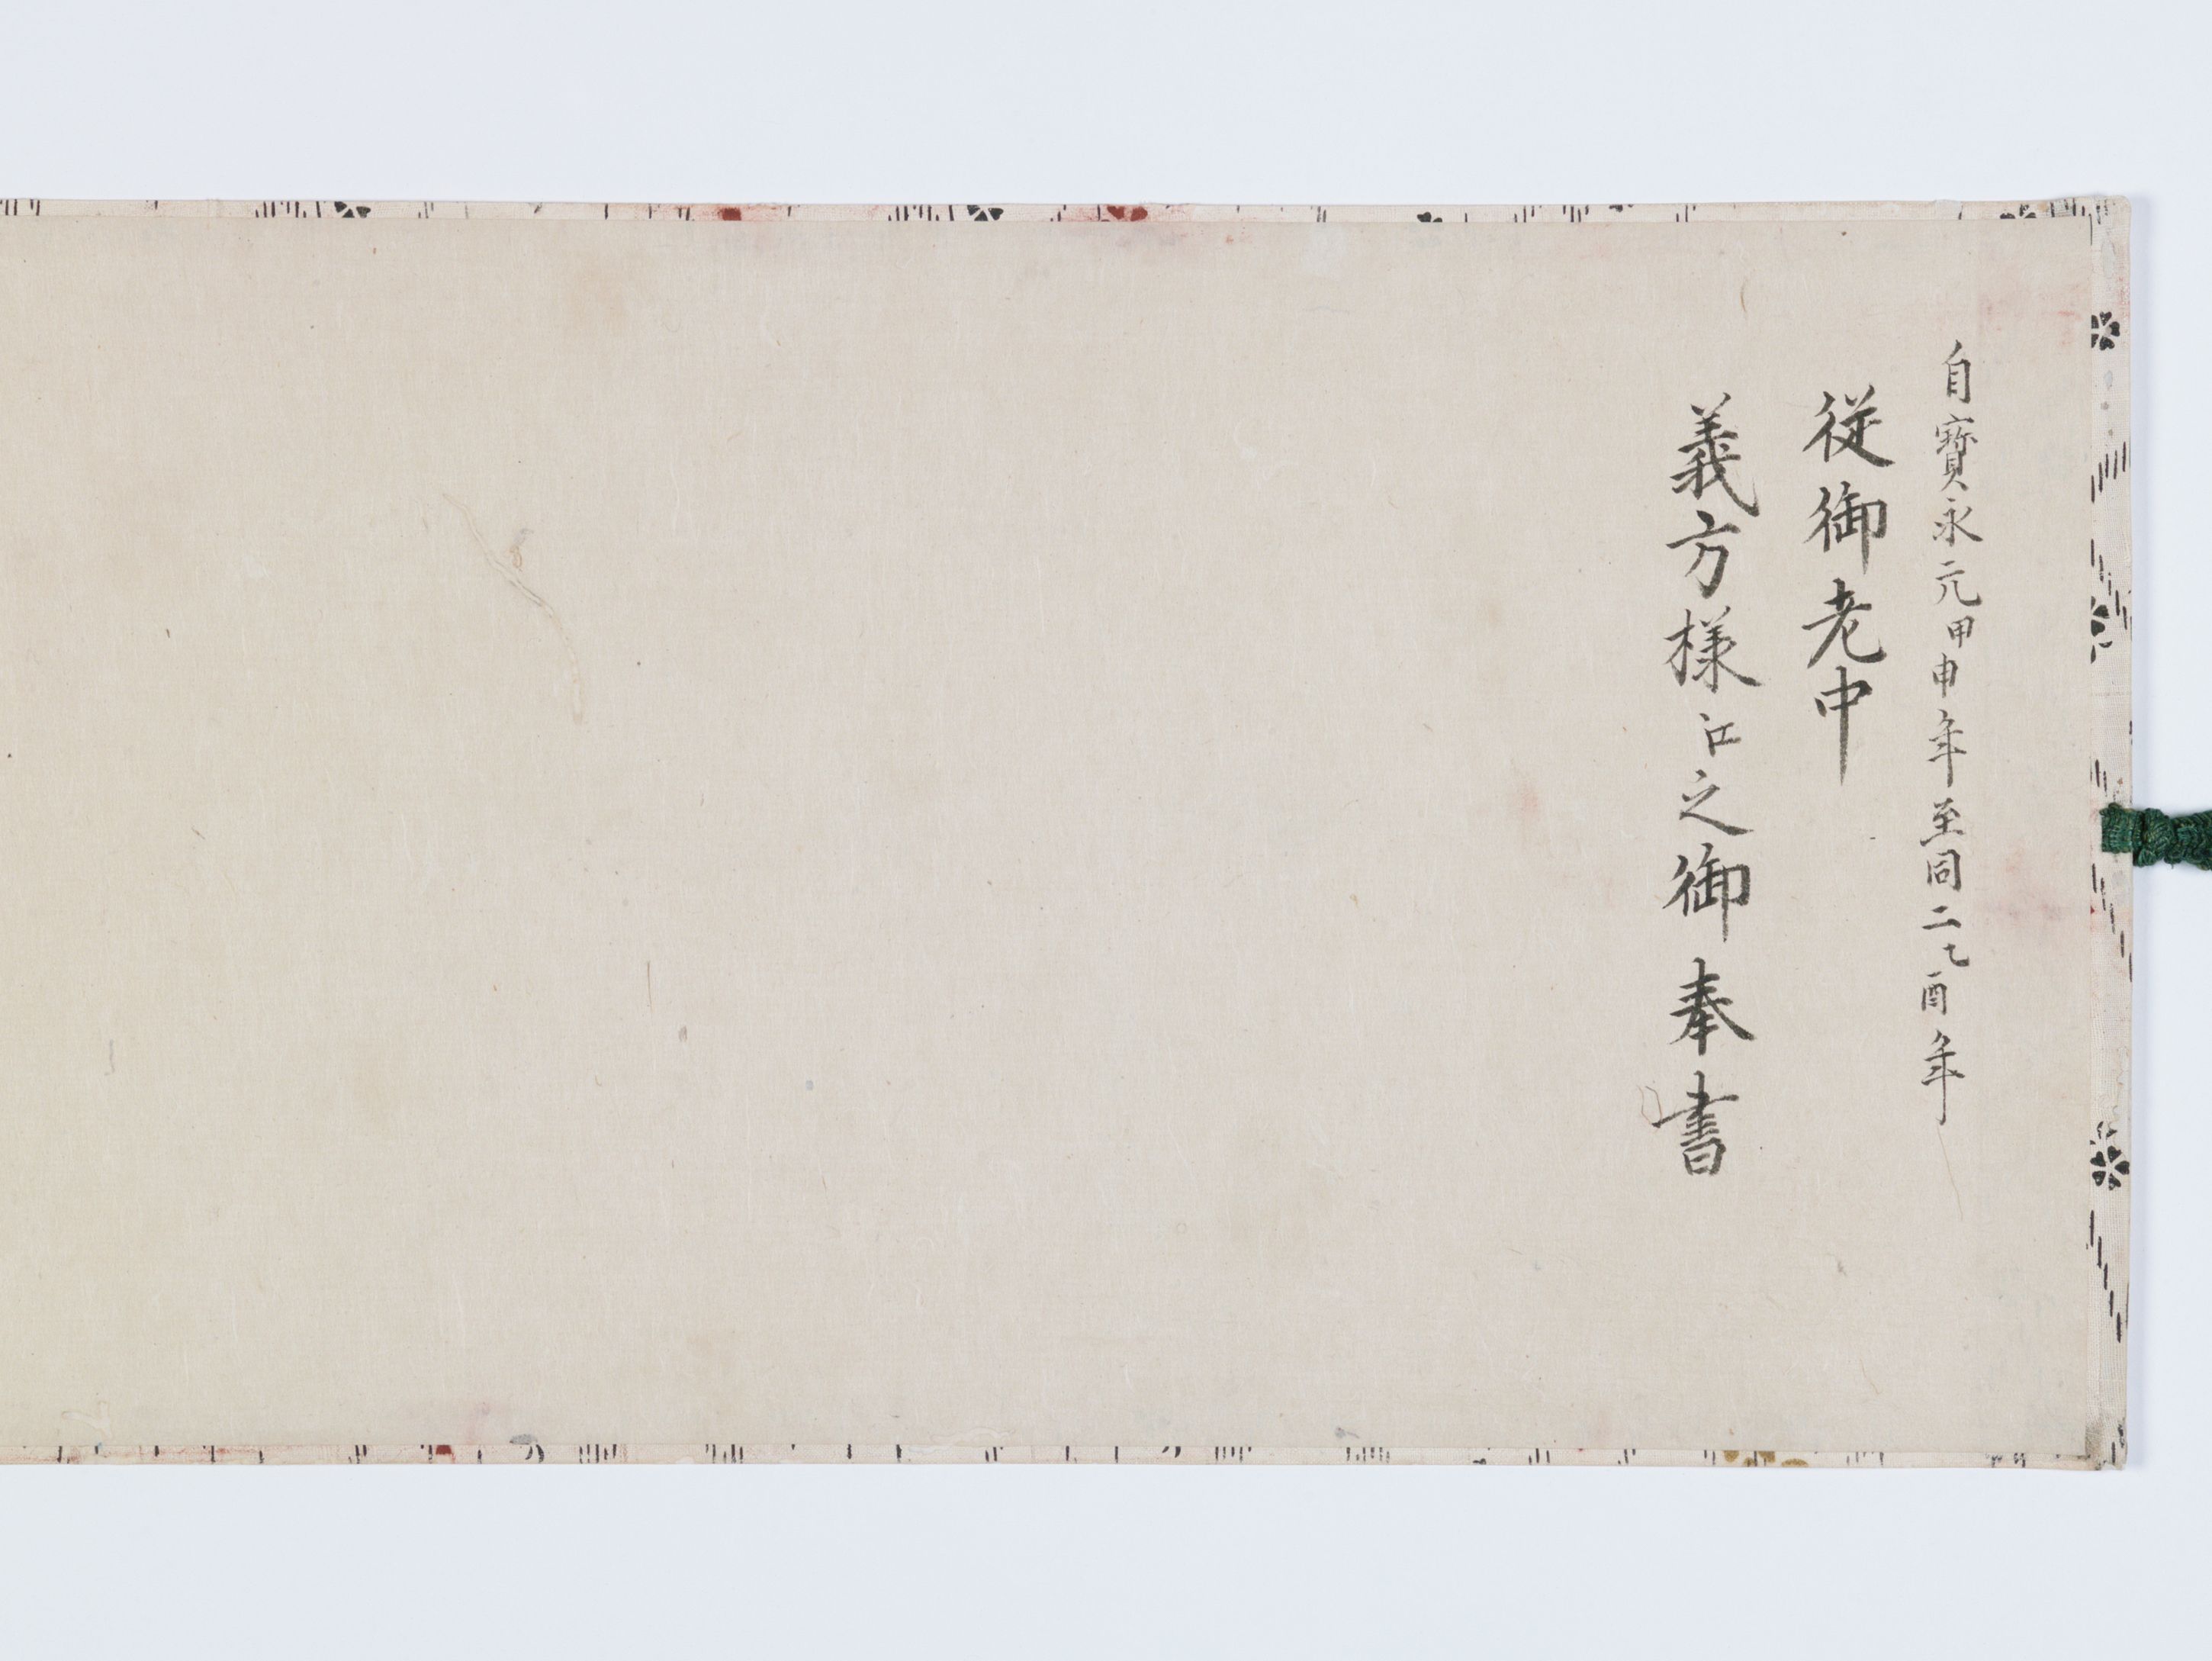 自寳永元甲申年至同二乙酉年
従御老中
義方様江之御奉書